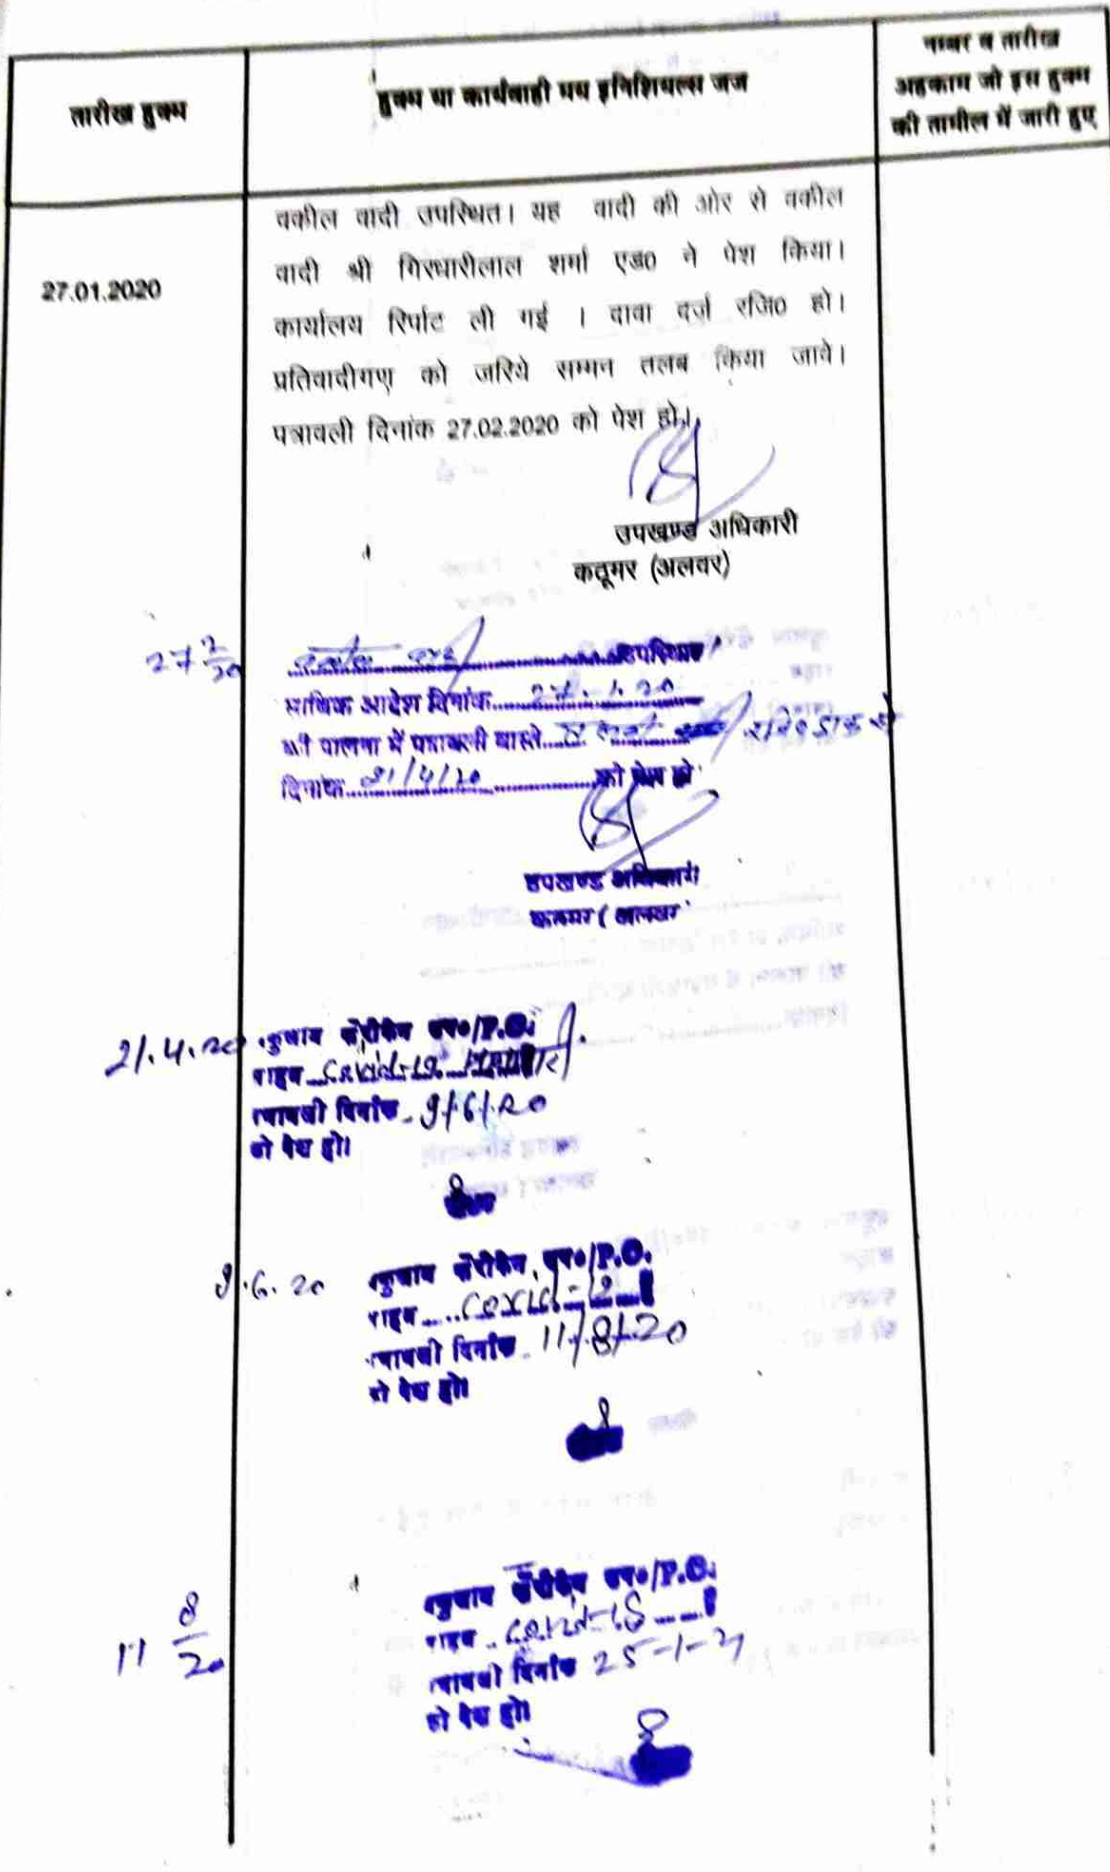 तारीख हुक्म
हुक्म या कार्यवाही मय इनिशियल्स जज
नम्बर व तारीख
अहकाम जो इस हुक्म
की तामील में जारी हुए
27.01.2020
वकील वादी उपस्थित। यह वादी की ओर से वकील
वादी श्री गिरधारीलाल शर्मा एड0 ने पेश किया।
कार्यालय रिर्पाट ली गई । दावा दर्ज रजि0 हो।
प्रतिवादीगण को जरिये सम्मन तलब किया जावे।
पत्रावली दिनांक 27.02.2020 को पेश हो।
उपखण्ड अधिकारी
कठूमर (अलवर)
27 2/20
उपस्थित
साबिक आदेश दिनांक 27.1.20
की पालना में पत्रावली वास्ते
दिनांक 21/4/20 को पेश हो
उपखण्ड अधिकारी
कठूमर ( अलवर
21.4.20
/P.O.
Covid-19
दिनांक 9/6/20
को पेश हो।
9.6.20
/P.O.
Covid-19
दिनांक 11/8/20
को पेश हो।
11 8/20
/P.O.
Covid-19
दिनांक 25-1-21
को पेश हो।